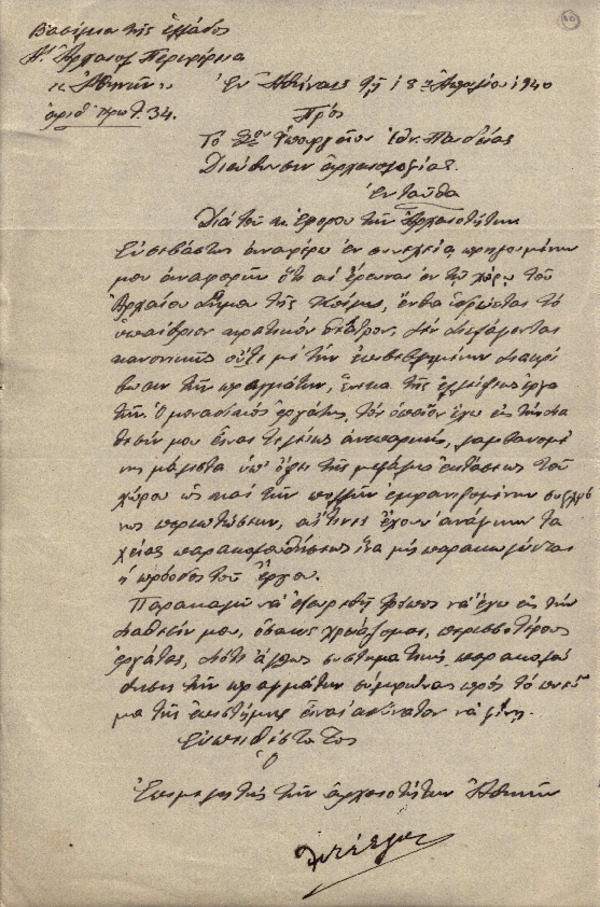 Βασίλειον της Ελλάδος
Αʹ Αρχαιολ. Περιφέρεια
Αθηνών
αριθ. πρωτ. 34.
Εν Αθήναις τη 18η Απριλίου 1940
Προς
Το Σεβ. Υπουργείον Εθν. Παιδείας
Διεύθυνσιν Αρχαιολογίας.
Ενταύθα
Δια του κ. Εφόρου των Αρχαιοτήτων
Ευσεβάστως αναφέρω εν συνεχεία προηγουμένων
μου αναφορών ότι αι έρευναι εν τω χώρω του
Αρχαίου Δήμου της Κοίλης, ένθα ιδρύεται το
υπαίθριον κρατικόν θέατρον, δεν διεξάγονται
κανονικώς ούτε με την επιβεβλημένην διακρί
βωσιν των πραγμάτων, ένεκα της ελλείψεως εργα
τών. Ο μοναδικός εργάτης, τον οποίον έχω εις την δια
θεσίν μου είναι τελείως ανεπαρκής, λαμβανομέ
νης μάλιστα υπ' όψει της μεγάλης εκτάσεως του
χώρου ως και των πολλών εμφανιζομένων συγχρό
νως περιπτώσεων, αίτινες έχουν ανάγκην τα
χείας παρακολουθήσεως ίνα μη παρακωλύεται
η πρόοδος του έργου.
Παρακαλώ να εξευρεθή τρόπος να έχω εις την
διάθεσίν μου, οσάκις χρειάζομαι, περισσοτέρους
εργάτας, διότι άλλως συστηματική παρακολού
θησις των πραγμάτων συμφώνως προς το πνεύ
μα της επιστήμης είναι αδύνατον να γίνη.
Ευπειθέστατος
Ο
Επιμελητής των Αρχαιοτήτων Αθηνών